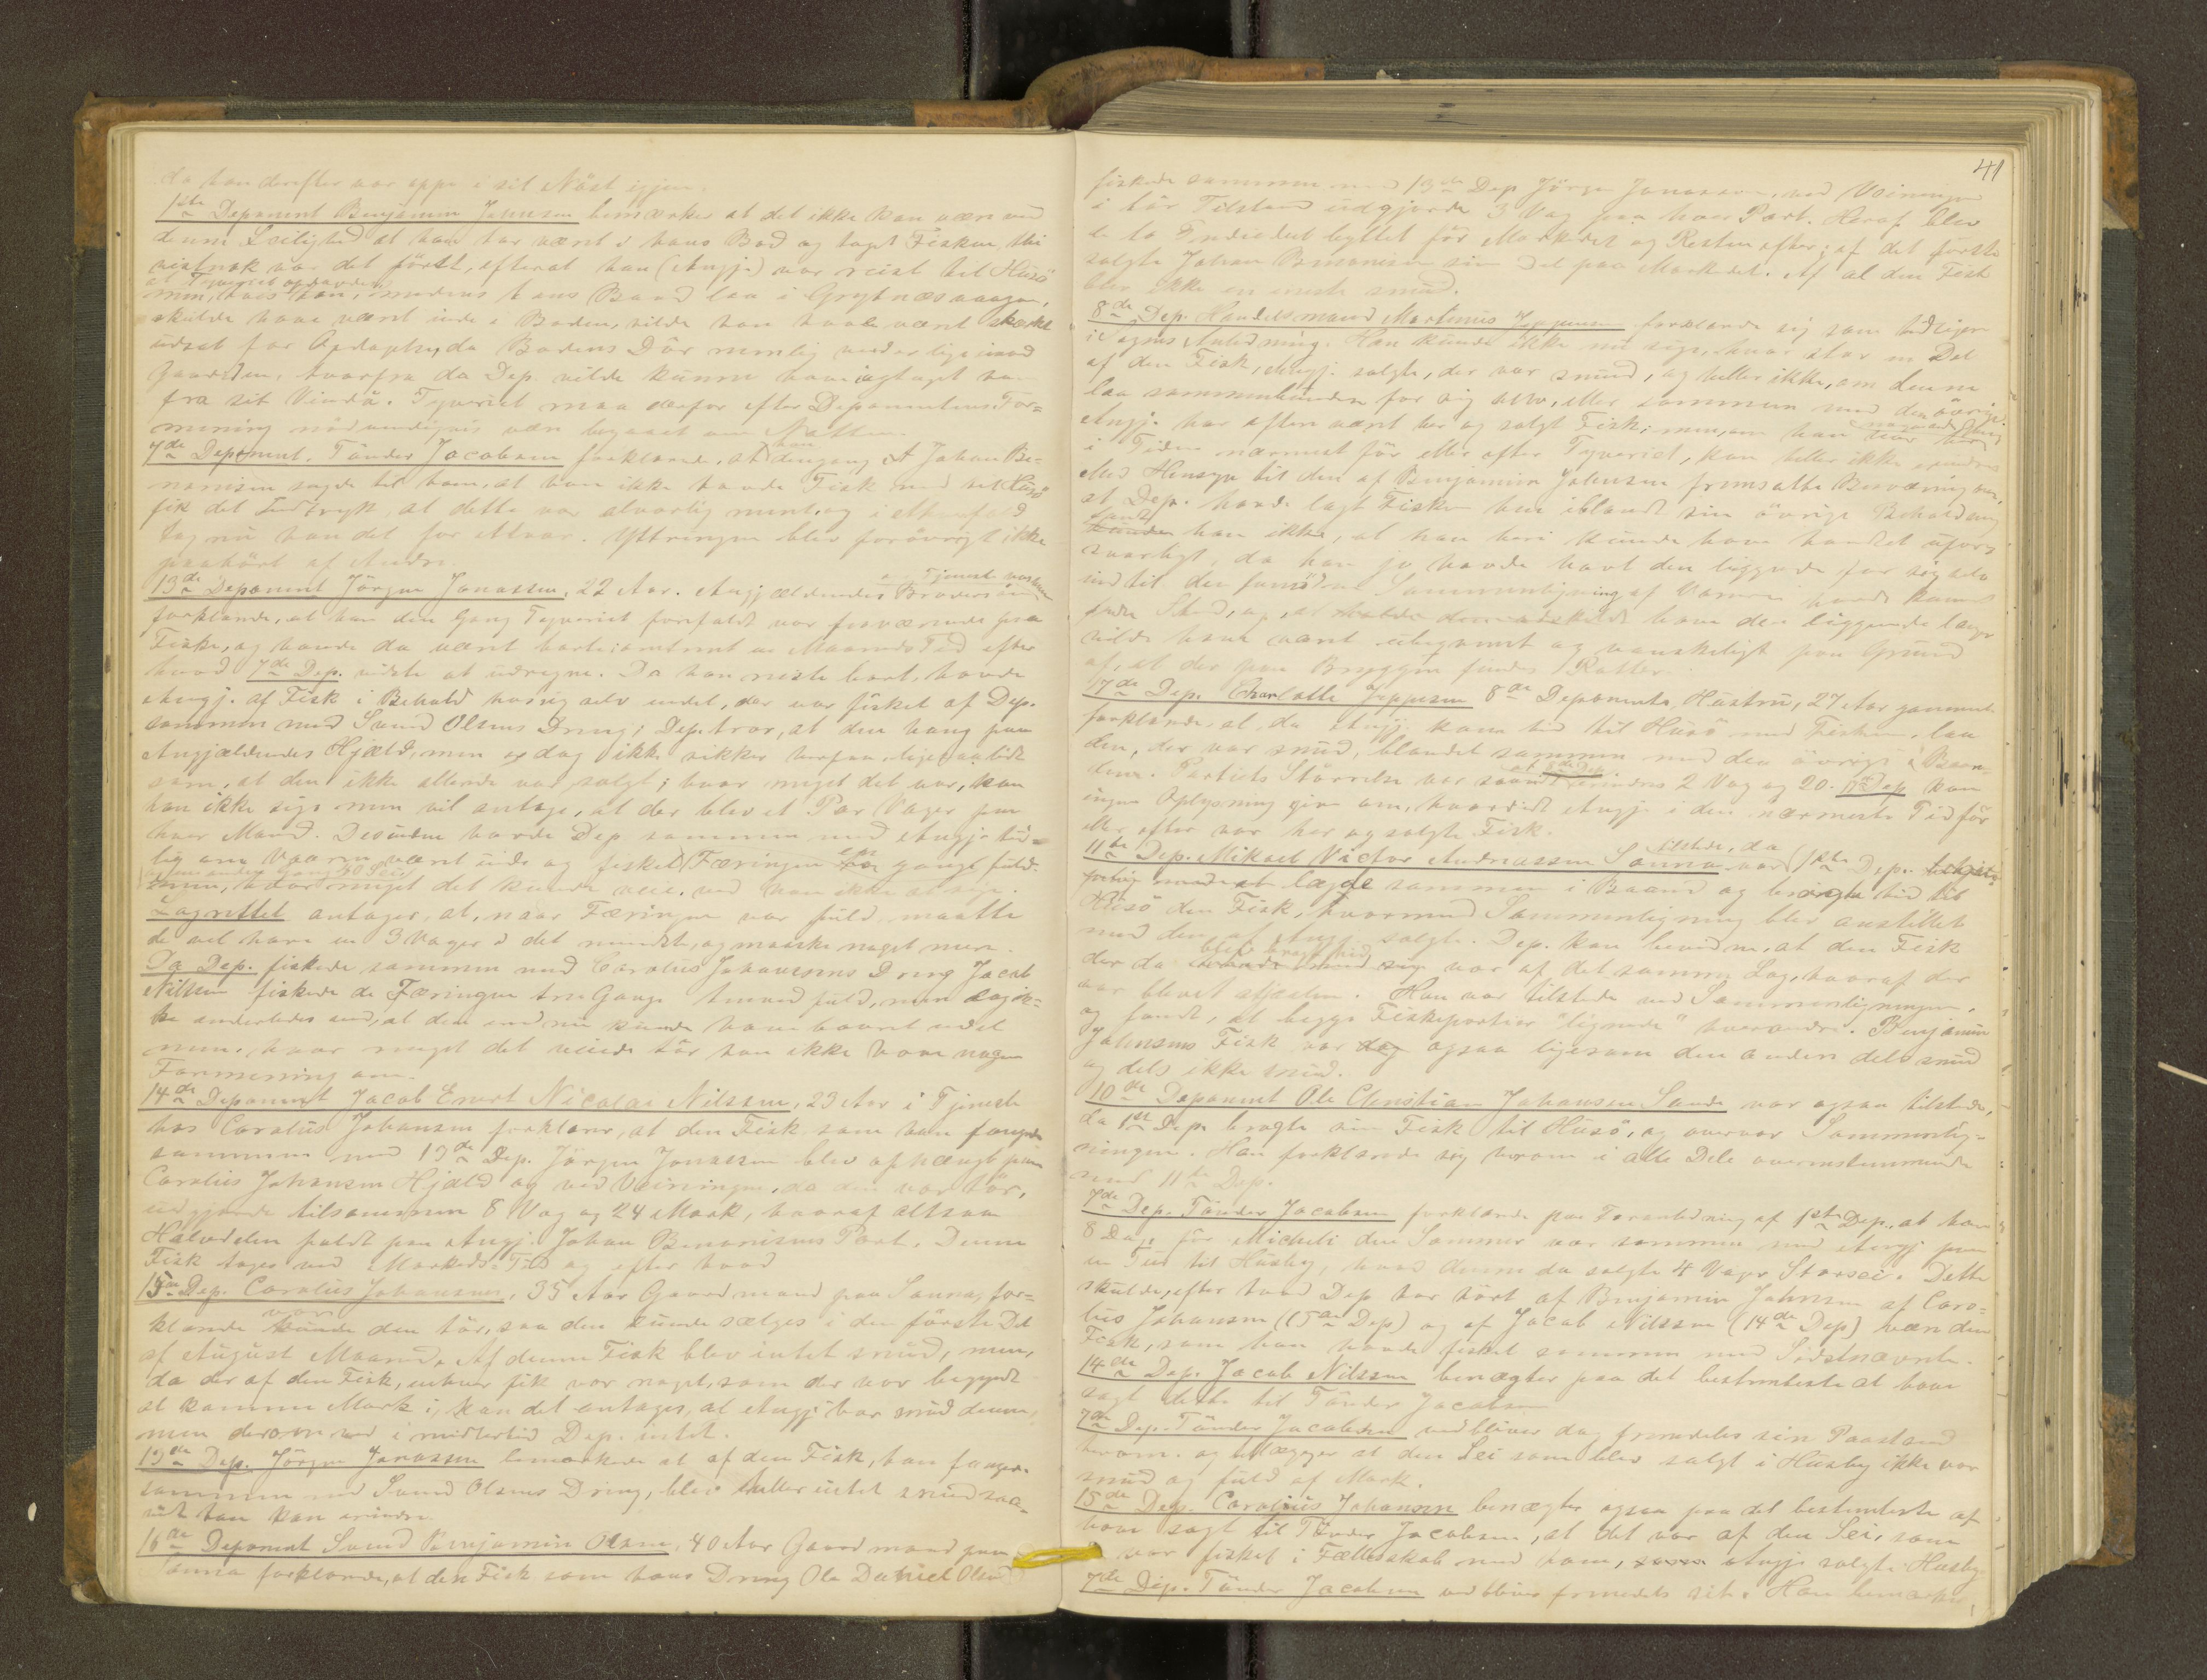 da han derefter var oppe i sit Nöst igjen.
1ste Deponent Benjamin Johnsen bemærker at det ikke kan være ved
denne Leilighed at han har været i hans Bod og taget Fisken, thi
vistnok var det förtt, efterat han (Angj.) var reist til Husö
at Tyveriet opdavedes
men, hvis han, medens hans Baad laa i Grytnæsvaagen,
skulde have været inde i Boden, vilde han have været stærkt
udsat for Opdagelse, da Bodens Dör nemlig vender lige imod
Gaarden, hvorfra da Dep. vilde kunne have iagttaget ham
fra sit Vindu. Tyveriet maa derfor efter Deponentens For=
mening nödvendigvis være begaaet om Natten.
7de Deponent, Tönder Jacobsen forklarer, at han dengang At Johan Be-
nonisen sagde til ham, at han ikke havde Fisk med til Husö
fik det Indtryk, at dette var alvorlig ment, og i ethvertfald
tog nu han det for Alvor. Yttringen blev forövrigt ikke
paahört af Andre.
13de Deponent Jörgen Jonassen, 22 Aar. Angjældendes Brodersön
og i Tjeneste hos ham
forklarede, at han den Gang Tyveriet forefaldt var fraværende paa
Fiske, og havde da været borte omtrent en Maaneds Tid efter
hvad 7de Dep. vidste at udregne. Da han reiste bort, havde
Angj. af Fisk i Behold hos sig selv endel, der var fisket af Dep.
sammen med Svend Olsens Dreng; Dep. tror, at den hang paa
Angjældendes Hjæld, men er dog ikke sikker herpaa, ligesaalidt
som, at den ikke allerede var solgt; hvor meget det var, kan
han ikke sige men vil antage, at der blev et Par Vager paa
hver Mand. Desuden havde Dep. sammen med Angj. tid=
lig om Vaaren været ude og fisket Færingen en gang fuld.
og en anden Gang 50 Sei
men, hvor meget det kunde veie, ved han ikke at sige.
Lagrettet antager, at, naar Færingen var fuld, maatte
de vel have en 3 Vager i det mindste, og maaske noget mere.
Da Dep. fiskede sammen med Carolus Johansens Dreng Jacob
Nilssen fiskede de Færingen tre Gange tvend fuld, men dog ik=
ke anderledes end, at den endnu kunde have baaret endel
mere. hvor meget det veiede tör han ikke have nogen
Formening om.
14de Deponent Jacob Enert Nicolai Nilssen, 23 Aar i Tjeneste
hos Carolus Johansen forklarer, at den Fisk som han fangede
sammen med 13de Dep. Jörgen Jonassen blev ophængt paa
Carolus Johansen Hjæld og ved Veiningen, da den var tör,
udgjorde tilsammen 8 Vog og 24 Mark, hvoraf altsaa
Halvdelen faldt paa Angj. Johan Benonisens Part. Denne
Fisk toges ned Markeds Tid og efter hvad
15de Dep. Carolus Johansen, 35 Aar Gaardmand paa Sanna, for=
klarede var den tör, saa den kunde sælges i den förste Del
af August Maaned. Af denne Fisk blev intet snud, men,
da der af den Fisk, enhver fik var noget, som der var begyndt
at komme Mark i, kan det antages, at Angj. har snud denne,
men derom ved imidlertid Dep. intet.
13de Dep. Jörgen Jonassen bemærkede at af den Fisk, han fangede
sammen med Svend Olsens Dreng, blev heller intet snud saa-
vidt han kan erindre.
16de Deponent Svend Benjamin Olsen, 40 Aar Gaardmand paa
Sanna forklarede, at den Fisk som hans Dreng Ole Daniel Olsen
41
fiskede sammen med 13de Dep Jörgen Jonassen, ved Veiningen
i tör Tilstand udgjorde 3 Vog paa hver Part. Heraf blev
to Trediedel byttet för Markedet og Resten efter; af det förste
solgte Johan Benonisen sin Del paa Markedet. Af al den Fisk
blev ikke en eneste snud.
8de Dep. Handelsmand Martinus Jeppesen forklarede sig som tidligere
i Sagens Anledning. Han kunde ikke nu sige, hvor stor en Del
af den Fisk, Angj. solgte, der var snud, og heller ikke, om denne
laa sammenbunden for sig selv, eller sammen med den övrige.
Angj. har oftere været her og solgt Fisk; men, om han var her
i Tiden nærmest för eller efter Tyveriet, kan heller ikke erindres
Med Hensyn til den af Benjamin Johnsen fremsatte Besværing over,
at Dep. havde lagt Fisken hen iblandt sin övrige Beholdning
fandt
han ikke, at han heri kunde have handlet ufor=
svarligt, da han jo havde havt den liggende for sig selv
indtil den famöse Sammenligning af Varerne havde kunnet
finde Sted, og, at have den liggende længer
vilde have været ubegvemt og vanskeligt paa Grund
af, at der paa Bryggen findes Rotter.
17de Dep. Charlotte Jeppesen 8de Deponents Hustru, 27 Aar gammel
forklarede, at, da Angj. kom hid til Husö med Fisken, laa
den, der var snud, blandet sammen med den övrige i Baa-
den. Partiets Störrelse var 2 Vog og 20. 17de Dep. kan
ingen Oplysning give om, hvorvidt Angj. i den nærmeste Tid för
eller efter var her og solgte Fisk.
11te Dep. Mikael Victor Andreassen Sanna var tilstede, da 1ste Dep.
lagde sammen i Baand og bragte hid til
Husö den Fisk, hvormed Sammenligning blev anstillet
med den af Angj. solgte. Dep. kan bevidne, at den Fisk
der da blev bragt hid var af det samme Lag, hvoraf der
var blevet stjaalen. Han var tilstede ved Sammenligningen,
og fandt, at begge Fiskepartier "lignede" hverandre. Benjamin
Johnsens Fisk var ogsaa ligesom den anden dels snud
og dels ikke snud.
10de Deponent Ole Christian Johansen Sande var ogsaa tilstede,
da 1ste Dep. bragte sin Fisk til Husö, og overvar Sammenlig-
ningen. Han forklarede sig herom i alle Dele overensstemmende
med 11te Dep.
7de Dep. Tönder Jacobsen forklarede paa Foranledning af 1ste Dep., at han
8 Dage för Micheli den Sommer var sammen med Angj. paa
en Tur til Husby, hvor denne da solgte 4 Vager Storsei. Dette
skulde, efter hvad Dep. har hört af Benjamin Johnsen af Caro=
lus Johansen (15de Dep) og af Jacob Nilssen (14de Dep) være den
Fisk, som han havde fisket sammen med Sidstnævnte.
14de Dep. Jacob Nilssen benægter paa det bestemteste at have
sagt dette til Tönder Jacobsen
7de Dep. Tönder Jacobsen vedbliver dog fremdeles sin Paastand
herom. og tillægger at den Sei som blev solgt i Husby ikke var
snud og fuld af Mark.
15de Dep. Carolius Johansen benægter ogsaa paa det bestemteste at
have sagt til Tönder Jacobsen, at det var af den Sei, som
var fisket i Fællesskab med ham, Angj. solgte Husby.
7de Dep. Tönder Jacobsen vedbliver fremdeles sit. Han bemærker